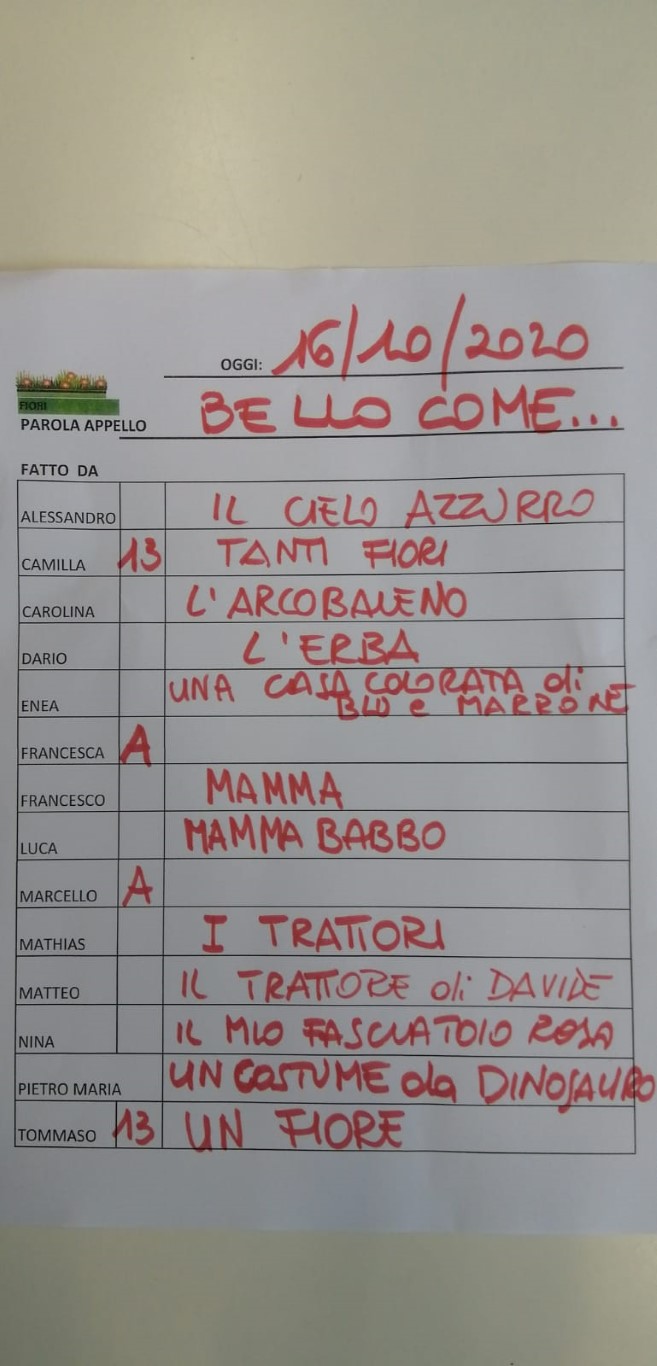 OGGI: 16/10/2020
FIORI
PAROLA APPELLO BELLO COME...
FATTO DA
ALESSANDRO IL CIELO AZZURRO
CAMILLA 13 TANTI FIORI
CAROLINA L'ARCOBALENO
DARIO L'ERBA
ENEA UNA CASA COLORATA di
BLU e MARRONE
FRANCESCA A
FRANCESCO MAMMA
LUCA MAMMA BABBO
MARCELLO A
MATHIAS I TRATTORI
MATTEO IL TRATTORE di DAVIDE
NINA IL MIO FASCIATOIO ROSA
PIETRO MARIA UN COSTUME da DINOSAURO
TOMMASO 13 UN FIORE